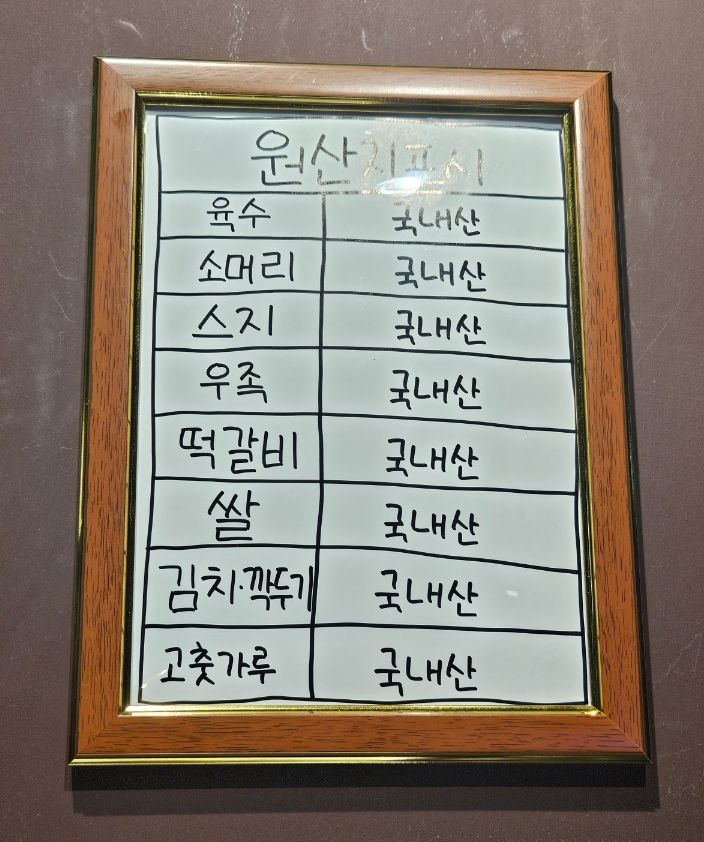 원산지표시
육수 국내산
소머리 국내산
스지 국내산
우족 국내산
떡갈비 국내산
쌀 국내산
김치·깍두기 국내산
고춧가루 국내산